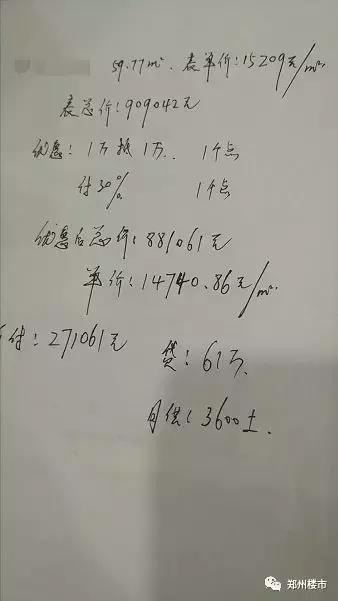 59.77m². 表单价:15209元/m².
表总价:909042元
优惠:1万抵1万. 1个点
付30% 1个点
优惠后总价:881061元
单价:14740.86元/m².
付:271061元 贷:61万.
月供:3600±.
郑州楼市